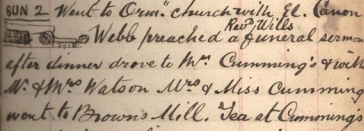 SUN 2 Went to Orms. church with El. Canon
Revd Wills
Webb preached a funeral sermon
after dinner drove to Mrs Cumming's & with
Mr & Mrs Watson Mrs & Miss Cumming
went to Browns Mill. Tea at Cummings